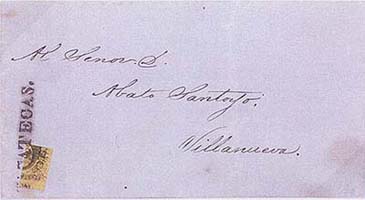 Al Senor D.
Abato Santoyo.
Villanueva.
ATECAS.